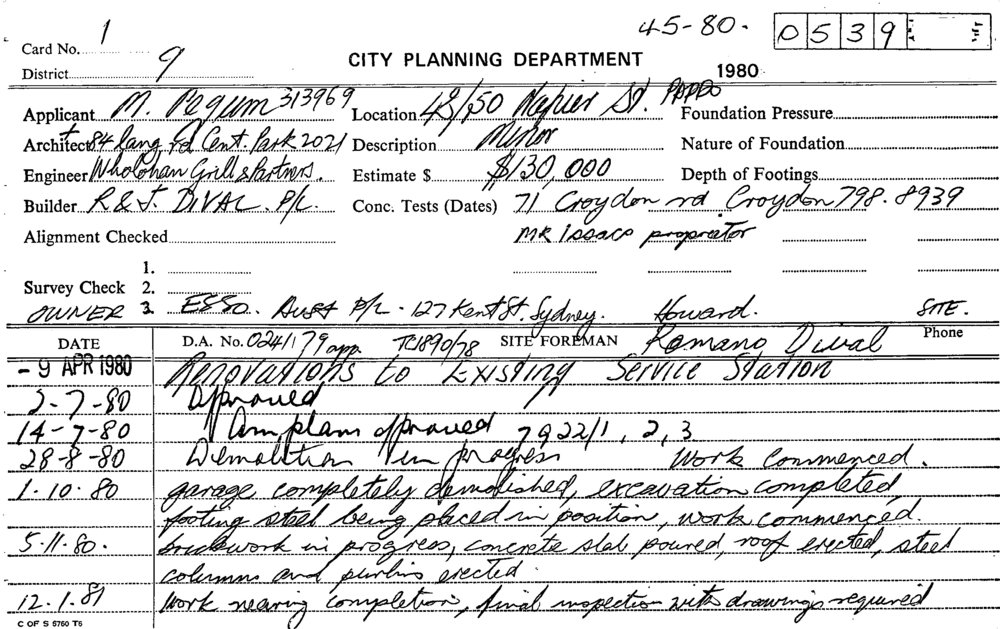 45-80. 0539
Card No. 1
District 9
CITY PLANNING DEPARTMENT
1980
Applicant M. Pegum 313969 Location 48/50 Napier St. PADDO Foundation Pressure
Architect + 84 Lang rd Cent. Park 2021 Description Minor Nature of Foundation
Engineer Wholohan Grill & Partners. Estimate $ $130,000 Depth of Footings
Builder R & J. DIVAL P/L. Conc. Tests (Dates) 71 Croydon rd Croydon 798.8939
Alignment Checked MR Issacs proprietor
1.
Survey Check 2.
OWNER 3. ESSO Aust P/L - 127 Kent St. Sydney. Howard. SITE.
DATE D.A. No. 0241/79 app. TC1890/78 SITE FOREMAN Romano Dival Phone
- 9 APR 1980 Renovations to Existing Service Station
2-7-80 Approved
14-7-80 Am. plans approved 7922/1, 2, 3
28-8-80 Demolition in progress Work Commenced.
1.10.80 garage completely demolished, excavation completed,
footing steel being placed in position, work commenced.
5.11.80. brickwork in progress, concrete slab poured, roof erected, steel
columns and purlins erected.
12.1.81 Work nearing completion, final inspection with drawings required
C OF S 5760 T6